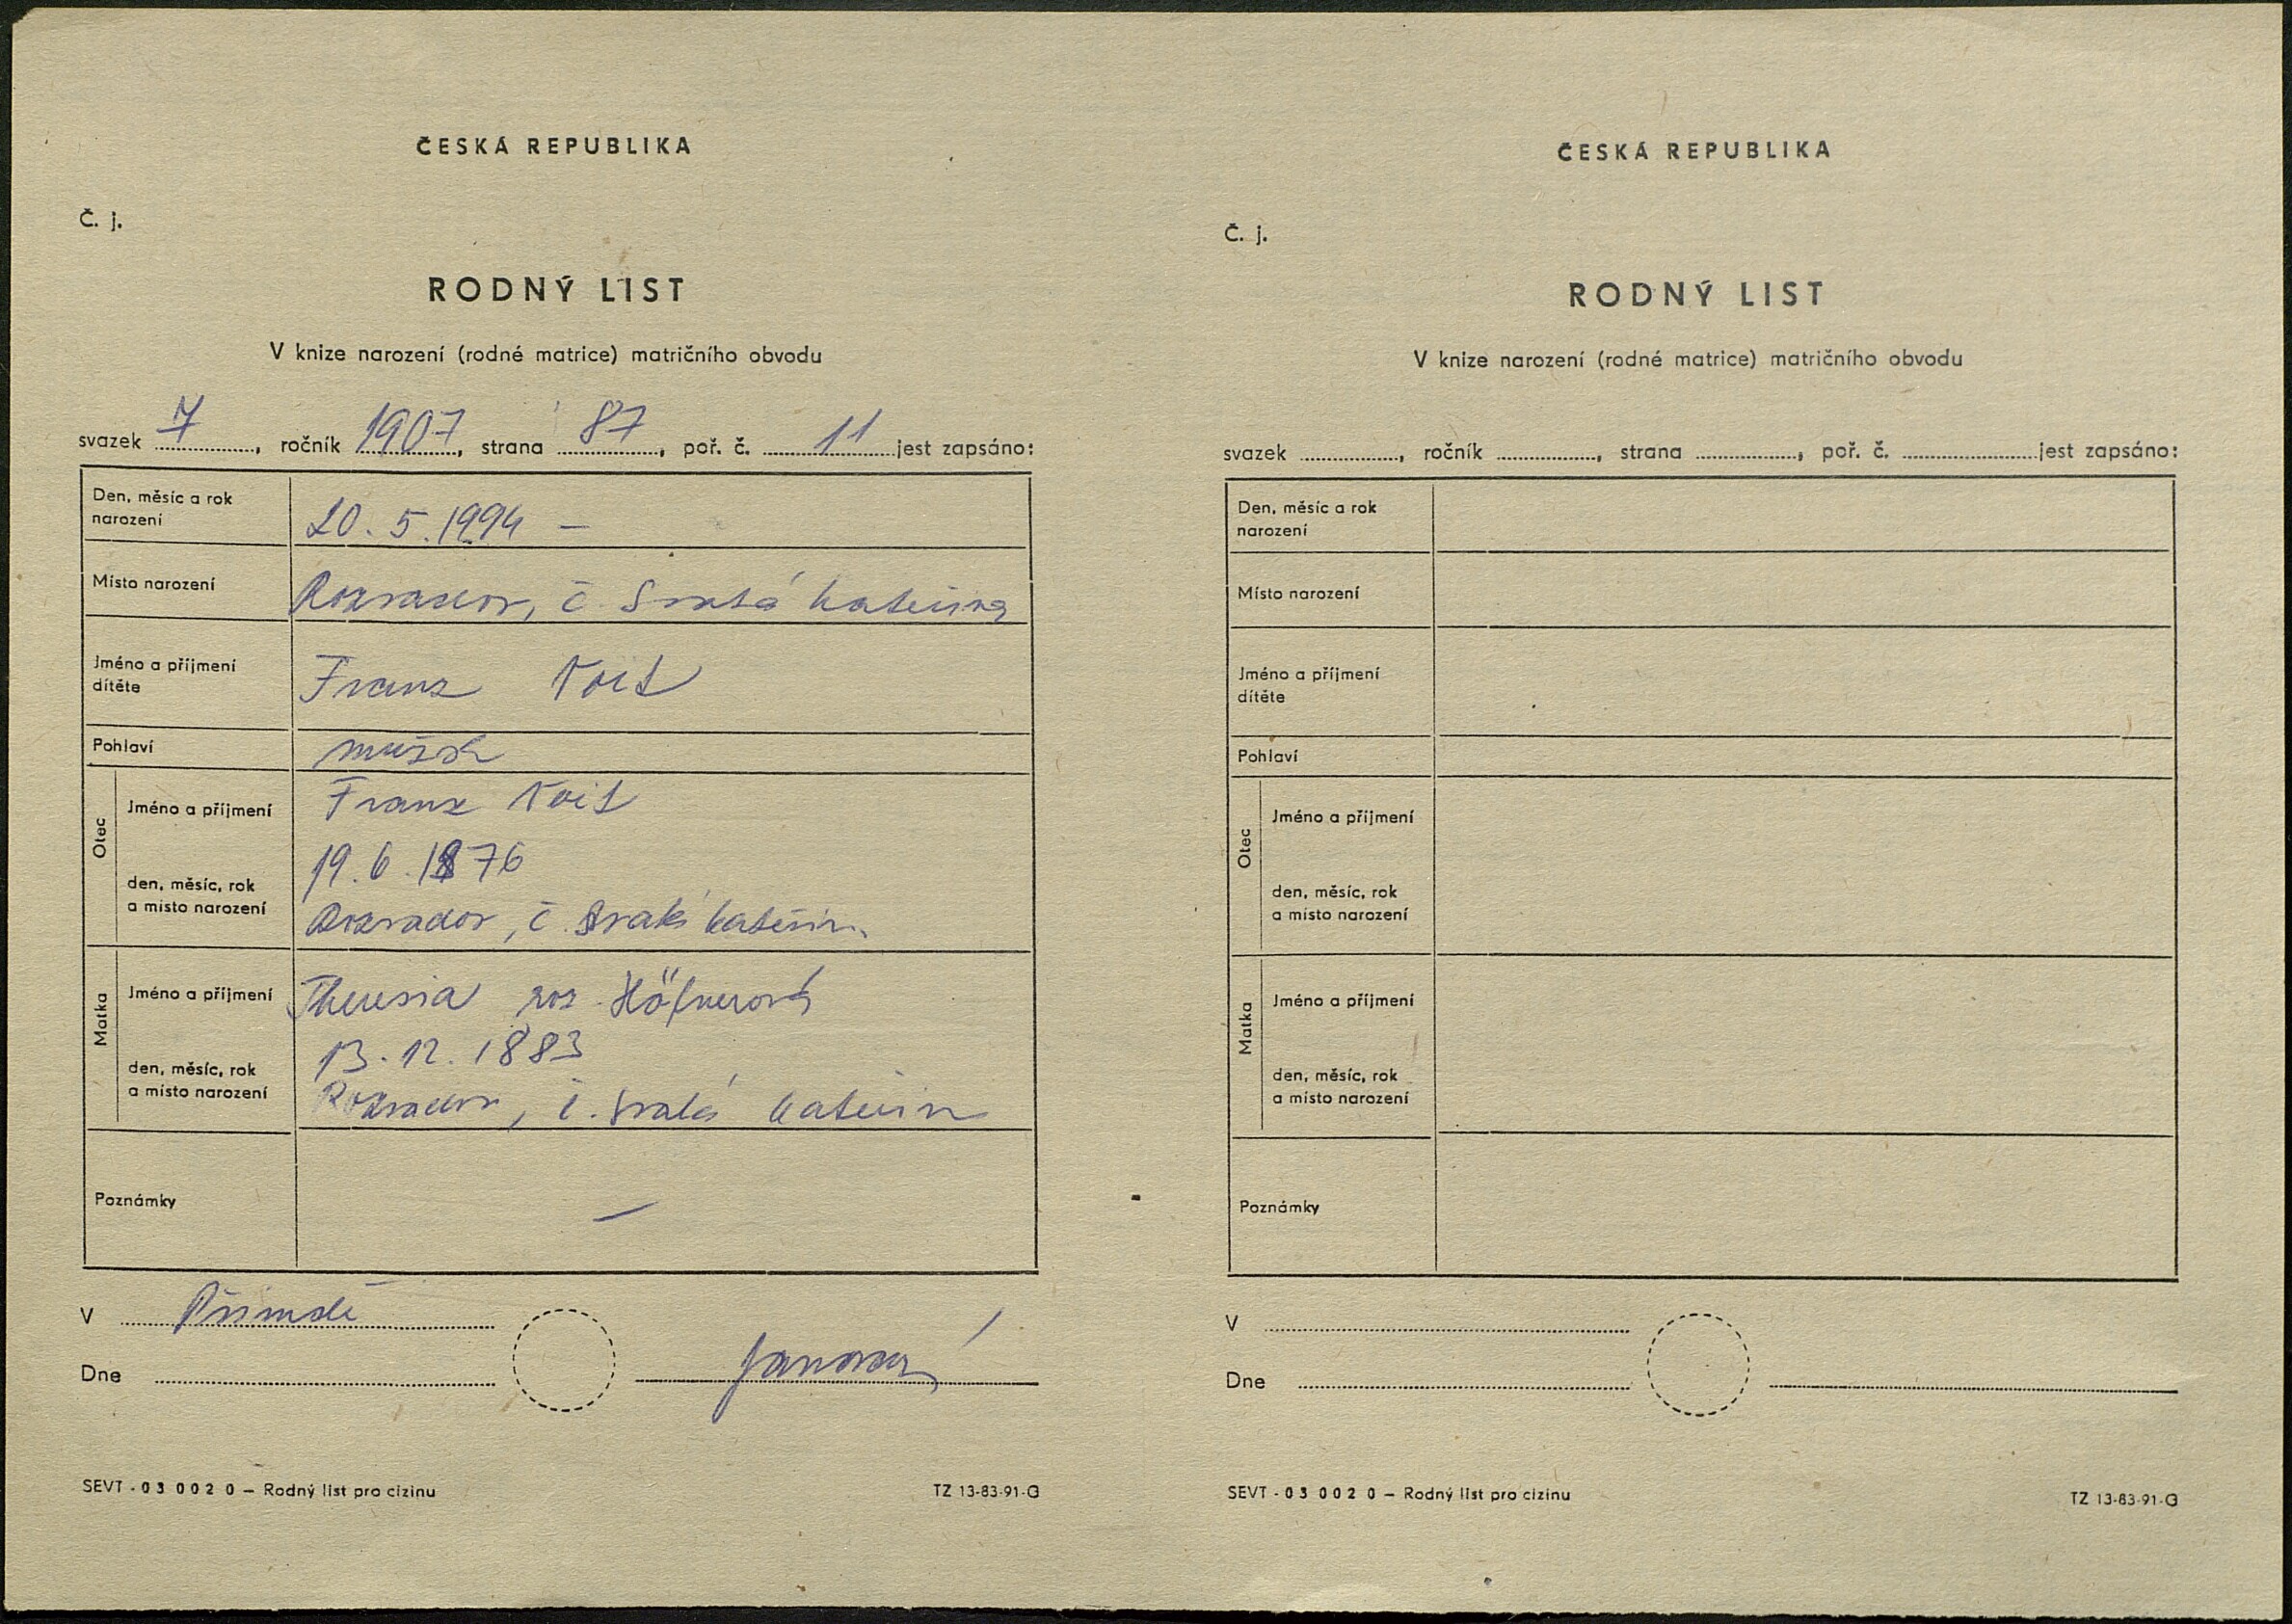 ČESKÁ REPUBLIKA
Č. j.
RODNÝ LIST
V knize narození (rodné matrice) matričního obvodu
svazek 7, ročník 1907, strana 87, poř. č. 11 jest zapsáno:
Den, měsíc a rok
narození
20. 5. 1994 —
Místo narození
Rozvadov, č. Svatá Kateřina
Jméno a příjmení
dítěte
Franz Voit
Pohlaví
mužsk
Otec
Jméno a příjmení
Franz Voit
den, měsíc, rok
a místo narození
19. 6. 1876
Rozvadov, č. Svatá Kateřin
Matka
Jméno a příjmení
Theresia roz. Höfnerová
den, měsíc, rok
a místo narození
13. 12. 1883
Rozvadov, č. Svatá Kateřin
Poznámky
—
V Přimdě
Dne
SEVT - 03 002 0 — Rodný list pro cizinu
TZ 13-83-91-G
ČESKÁ REPUBLIKA
Č. j.
RODNÝ LIST
V knize narození (rodné matrice) matričního obvodu
svazek , ročník , strana , poř. č. jest zapsáno:
Den, měsíc a rok
narození
Místo narození
Jméno a příjmení
dítěte
Pohlaví
Otec
Jméno a příjmení
den, měsíc, rok
a místo narození
Matka
Jméno a příjmení
den, měsíc, rok
a místo narození
Poznámky
V
Dne
SEVT - 03 002 0 — Rodný list pro cizinu
TZ 13-83-91-G